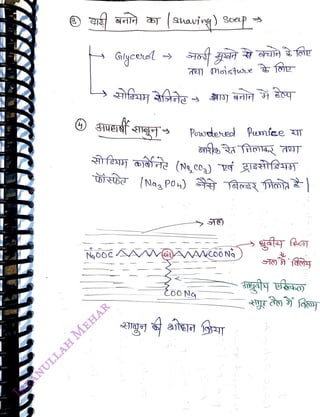 ③ दाढ़ी बनाने का (shaving) soap →
→ Glycerol → जल्दी सूखने से बचाने के लिए
तथा moisture के लिए
→ सोडियम रोजिनेट → झाग बनाने में हेल्प
④ अपमार्षी साबुन → Powdered Pumice या
बारीक रेत मिलाकर तथा
सोडियम कार्बोनेट (Na₂CO₃) एवं ट्राइसोडियम
फॉस्फेट (Na₃PO₄) जैसे बिल्डर मिलाते है।
→ जल
NaOOC COONa
→ ध्रुवीय सिरा
जल में विलेय
COONa
अध्रुवीय एल्किल
समूह तेल में विलेय
साबुन की शोधन क्रिया
AMANULLAH MEHAR